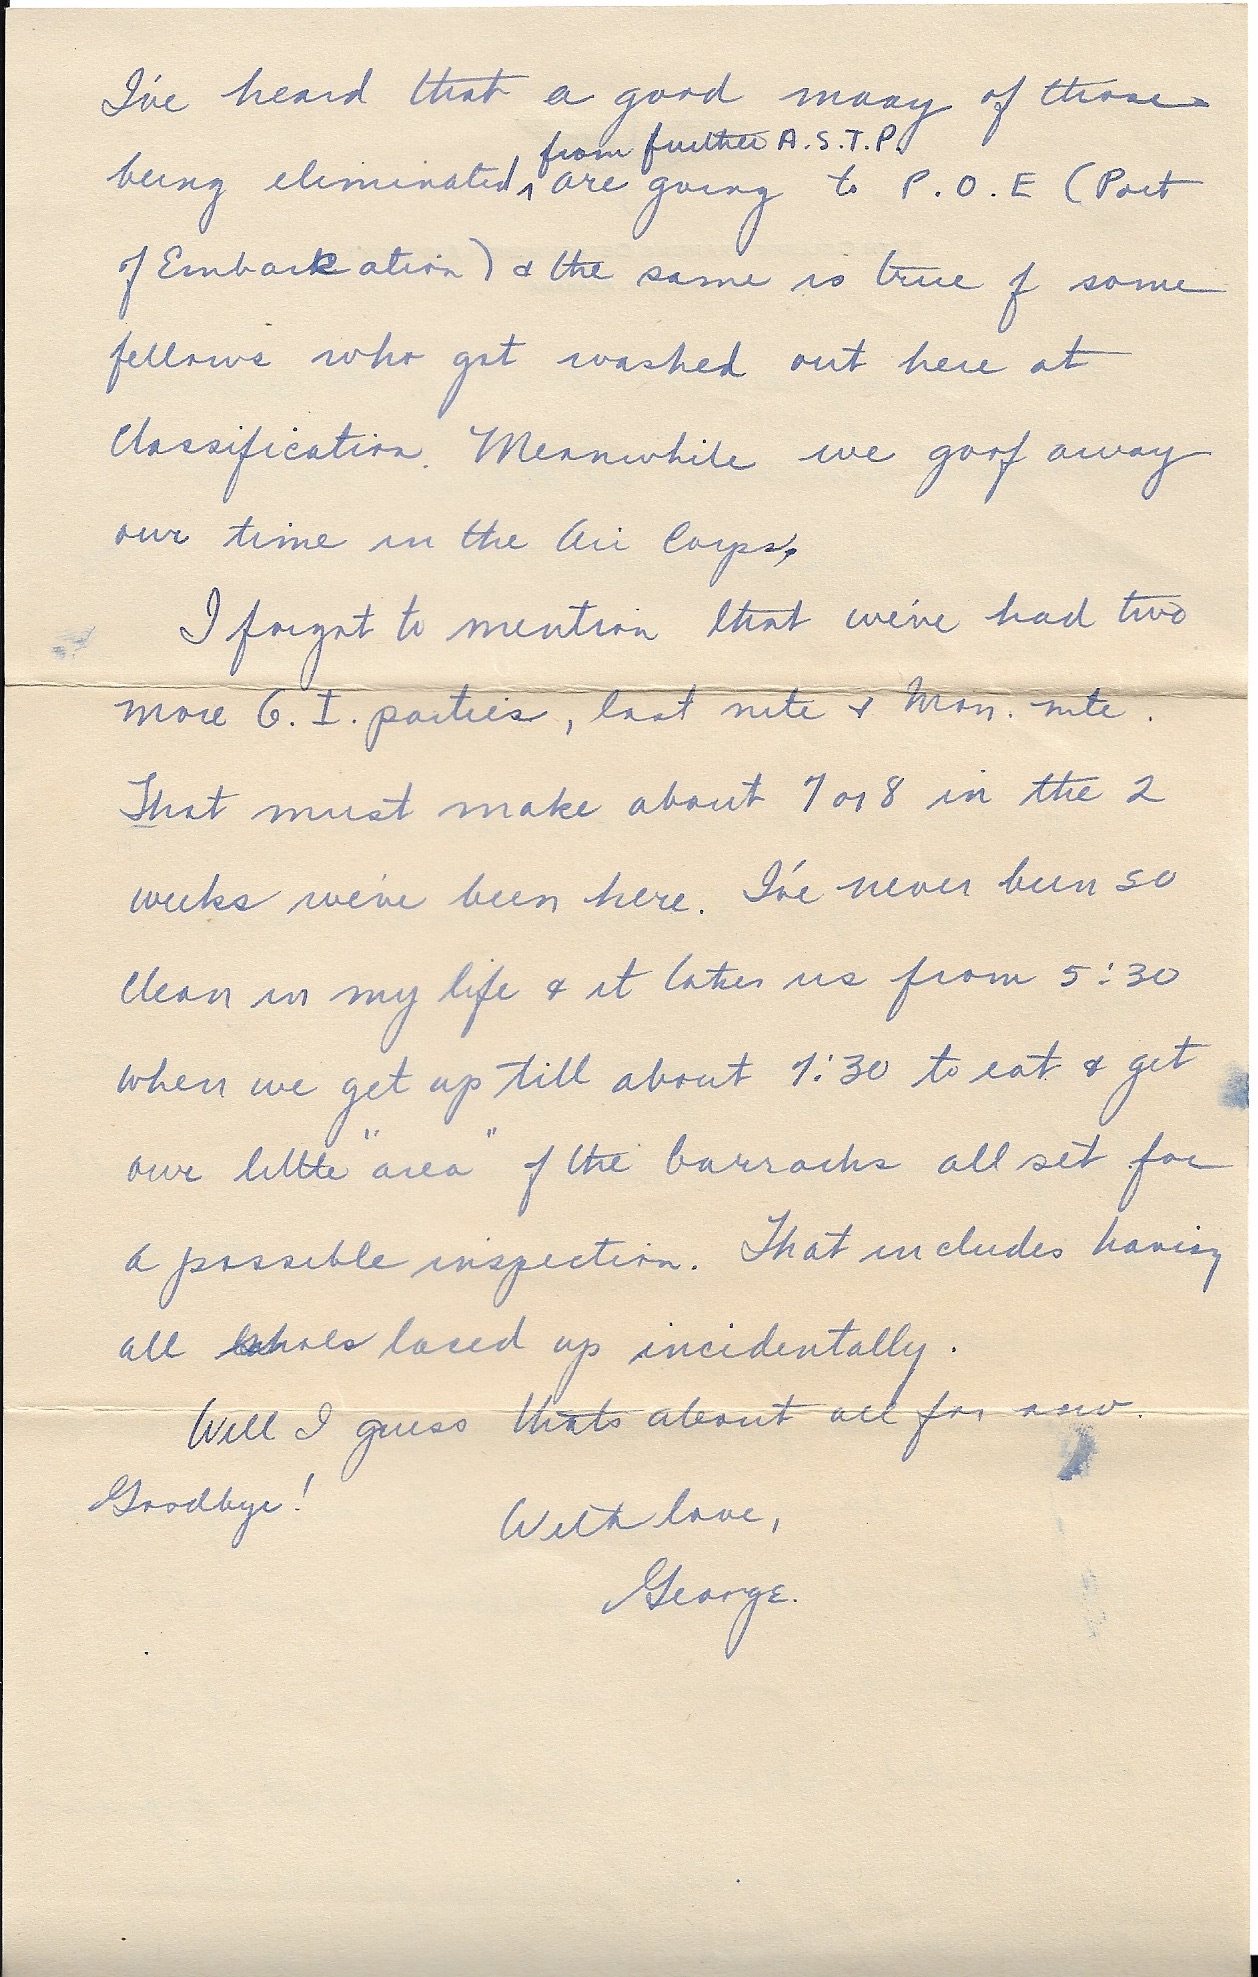 I've heard that a good many of those
from further A.S.T.P.
being eliminated, are going to P.O.E (Port
of Embarkation) & the same is true of some
fellows who got washed out here at
Classification. Meanwhile we goof away
our time in the Air Corps.
I forgot to mention that we've had two
more G.I. parties, last nite & Mon. nite.
That must make about 7 or 8 in the 2
weeks we've been here. I've never been so
clean in my life & it takes us from 5:30
when we get up till about 7:30 to eat & get
our little "area" of the barracks all set for
a possible inspection. That includes having
all shoes laced up incidentally.
Well I guess thats about all for now.
Goodbye!
With love,
George.